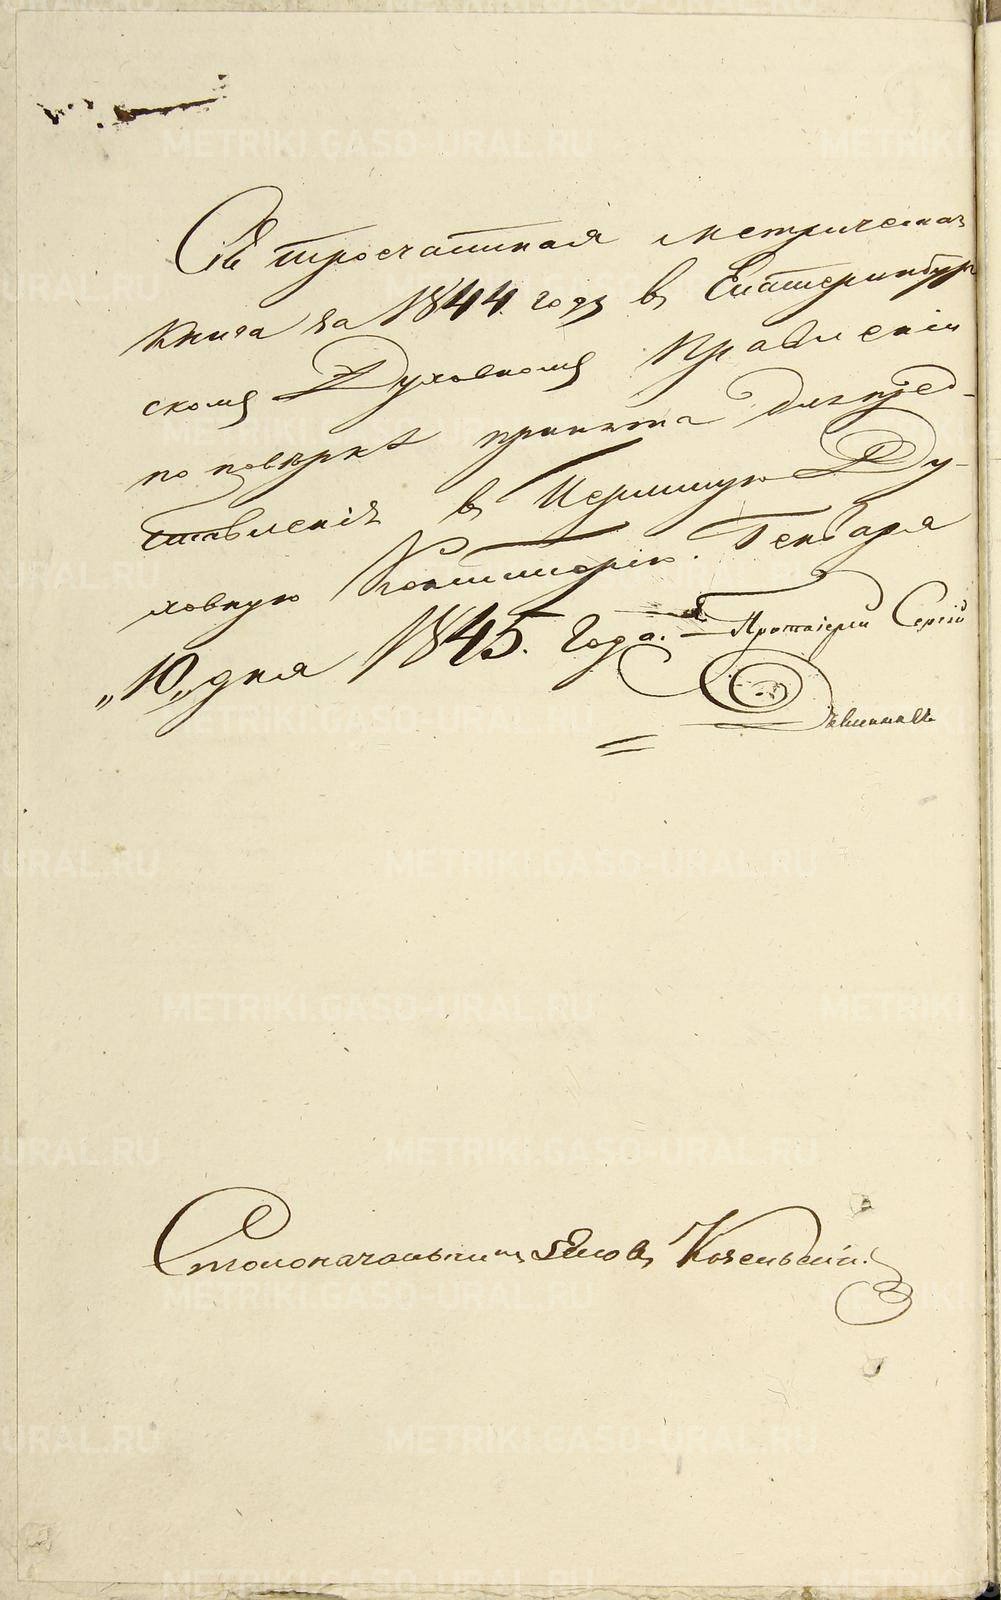 Сія тросчатиная метрическая
книга за 1844 годъ въ Екатеринбур
скомъ Духовномъ Правленіи
по повѣркѣ принята для пред-
ставленія въ Пермскую Ду-
ховную Консисторію. Генваря
„10„ дня 1845. Года. Протоіерей Сергій
Столоначальникъ Яковъ
METRIKI.GASO-URAL.RU